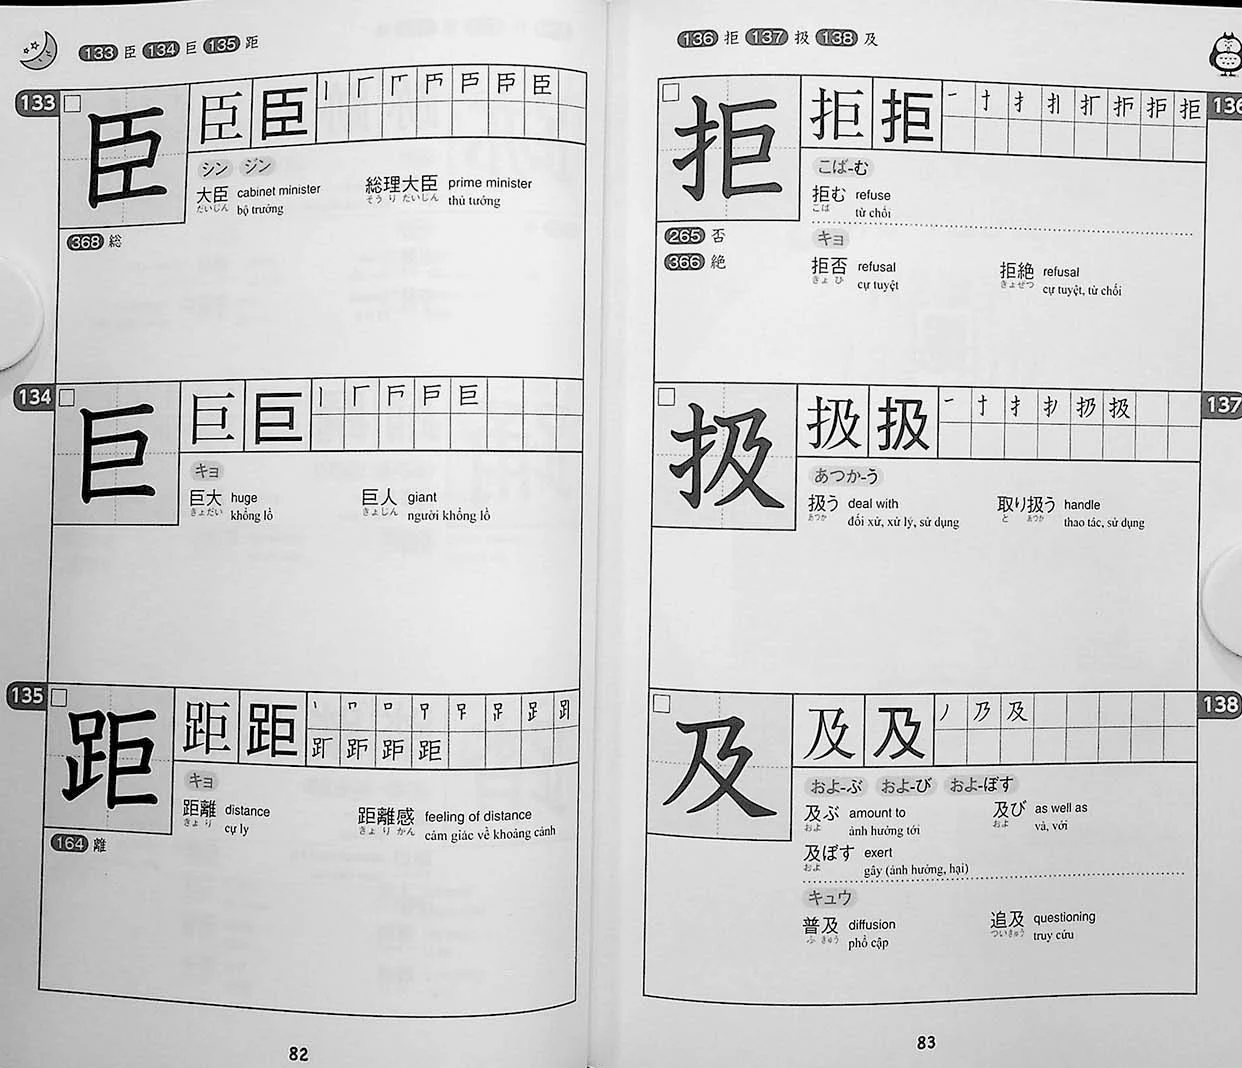 133 臣 134 巨 135 距
133
臣 臣 臣
シン ジン
大臣 cabinet minister 総理大臣 prime minister
だいじん bộ trưởng そうりだいじん thủ tướng
368 総
134
巨 巨 巨
キョ
巨大 huge 巨人 giant
きょだい khổng lồ きょじん người khổng lồ
135
距 距 距
キョ
距離 distance 距離感 feeling of distance
きょり cự ly きょりかん cảm giác về khoảng cánh
164 離
82
136 拒 137 扱 138 及
136
拒 拒 拒
こば-む
拒む refuse
こば từ chối
265 否
366 絶
キョ
拒否 refusal 拒絶 refusal
きょひ cự tuyệt きょぜつ cự tuyệt, từ chối
137
扱 扱 扱
あつか-う
扱う deal with 取り扱う handle
あつか đối xử, xử lý, sử dụng と あつか thao tác, sử dụng
138
及 及 及
およ-ぶ およ-び およ-ぼす
及ぶ amount to 及び as well as
およ ảnh hưởng tới およ và, với
及ぼす exert
およ gây (ảnh hưởng, hại)
キュウ
普及 diffusion 追及 questioning
ふきゅう phổ cập ついきゅう truy cứu
83